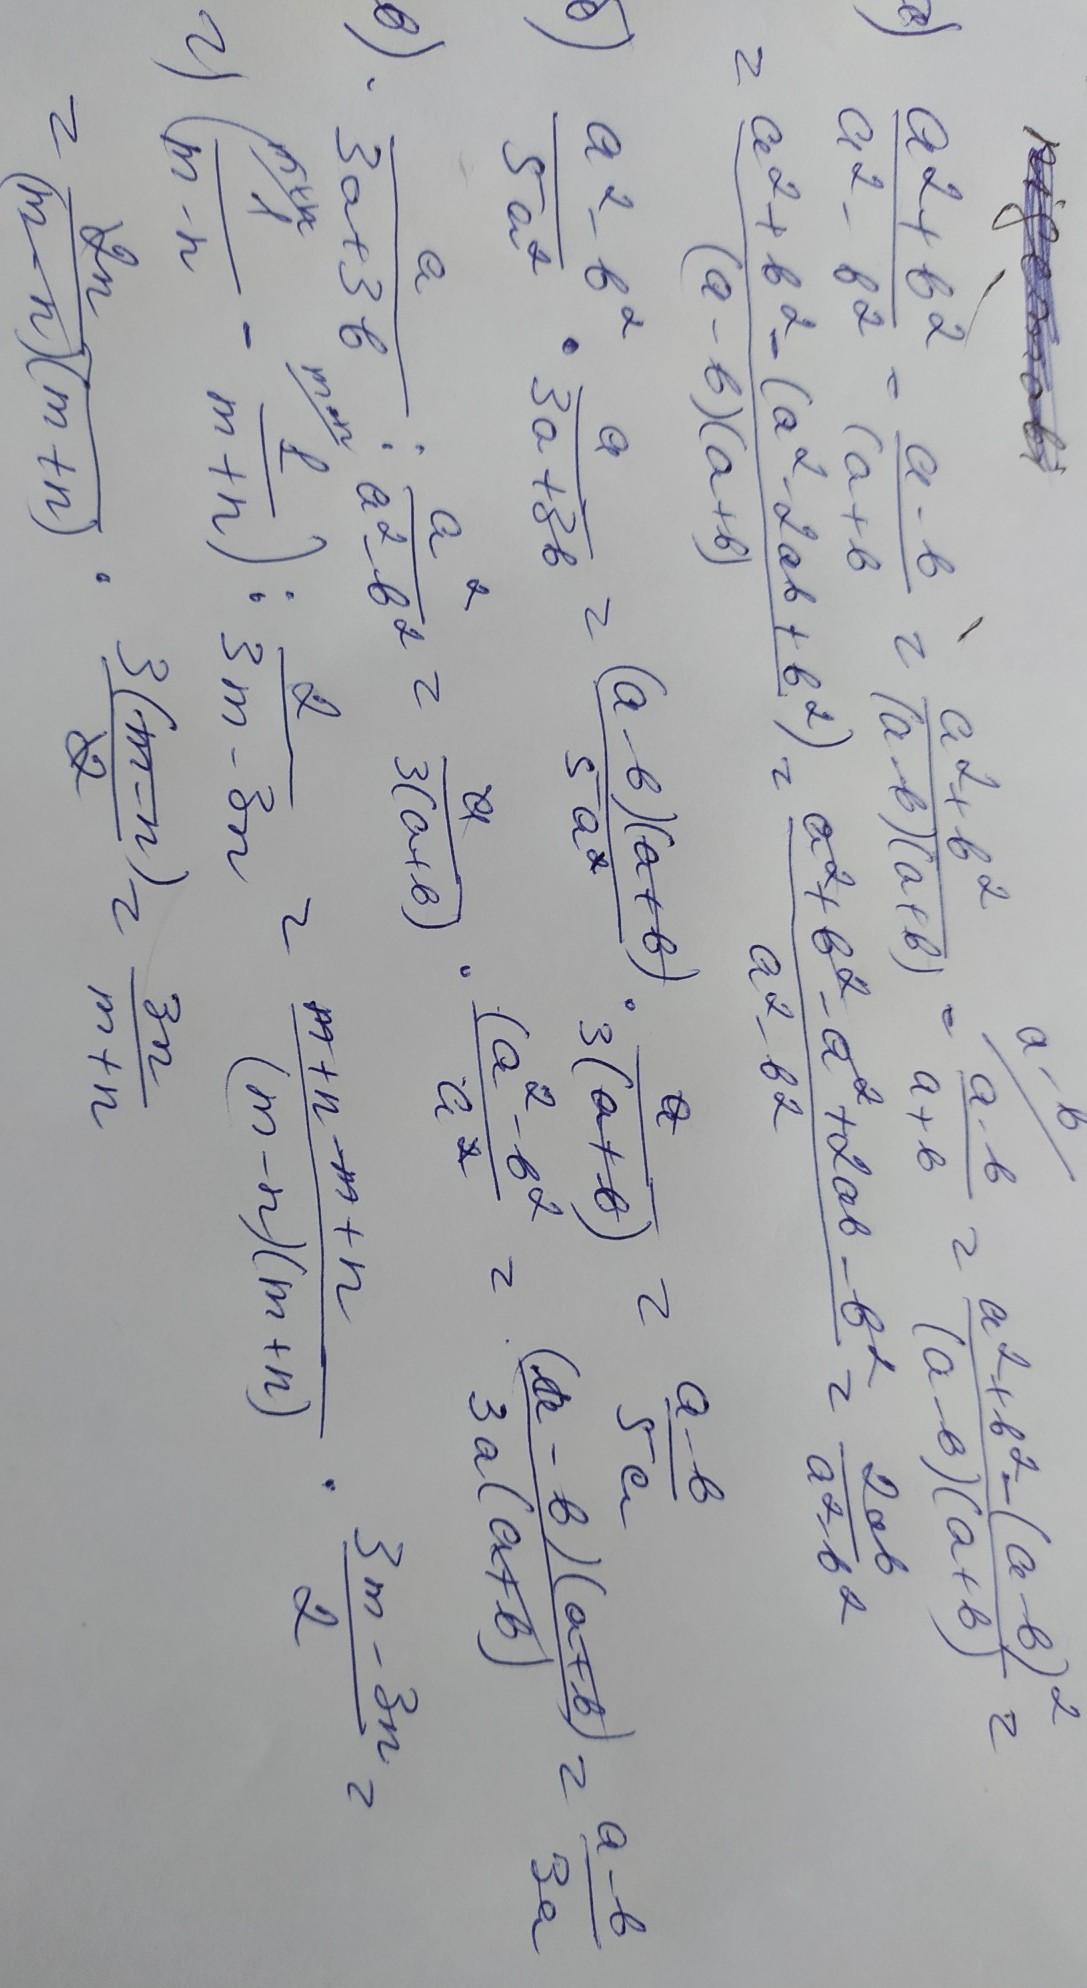 a - b
а) a² + b² / a² - b² - a - b / a + b = a² + b² / (a - b)(a + b) - a - b / a + b = a² + b² - (a - b)² / (a - b)(a + b) =
= a² + b² - (a² - 2ab + b²) / (a - b)(a + b) = a² + b² - a² + 2ab - b² / a² - b² = 2ab / a² - b²
б) a² - b² / 5a² · a / 3a + 3b = (a - b)(a + b) / 5a² · a / 3(a + b) = a - b / 5a
в) · a / 3a + 3b : a² / a² - b² = a / 3(a + b) · (a² - b² / a² = (a - b)(a + b) / 3a(a + b) = a - b / 3a
г) ( m+n 1 / m - n - m-n 1 / m + n ) : 2 / 3m - 3n = m + n - m + n / (m - n)(m + n) · 3m - 3n / 2 =
= 2n / (m - n)(m + n) · 3(m - n) / 2 = 3n / m + n